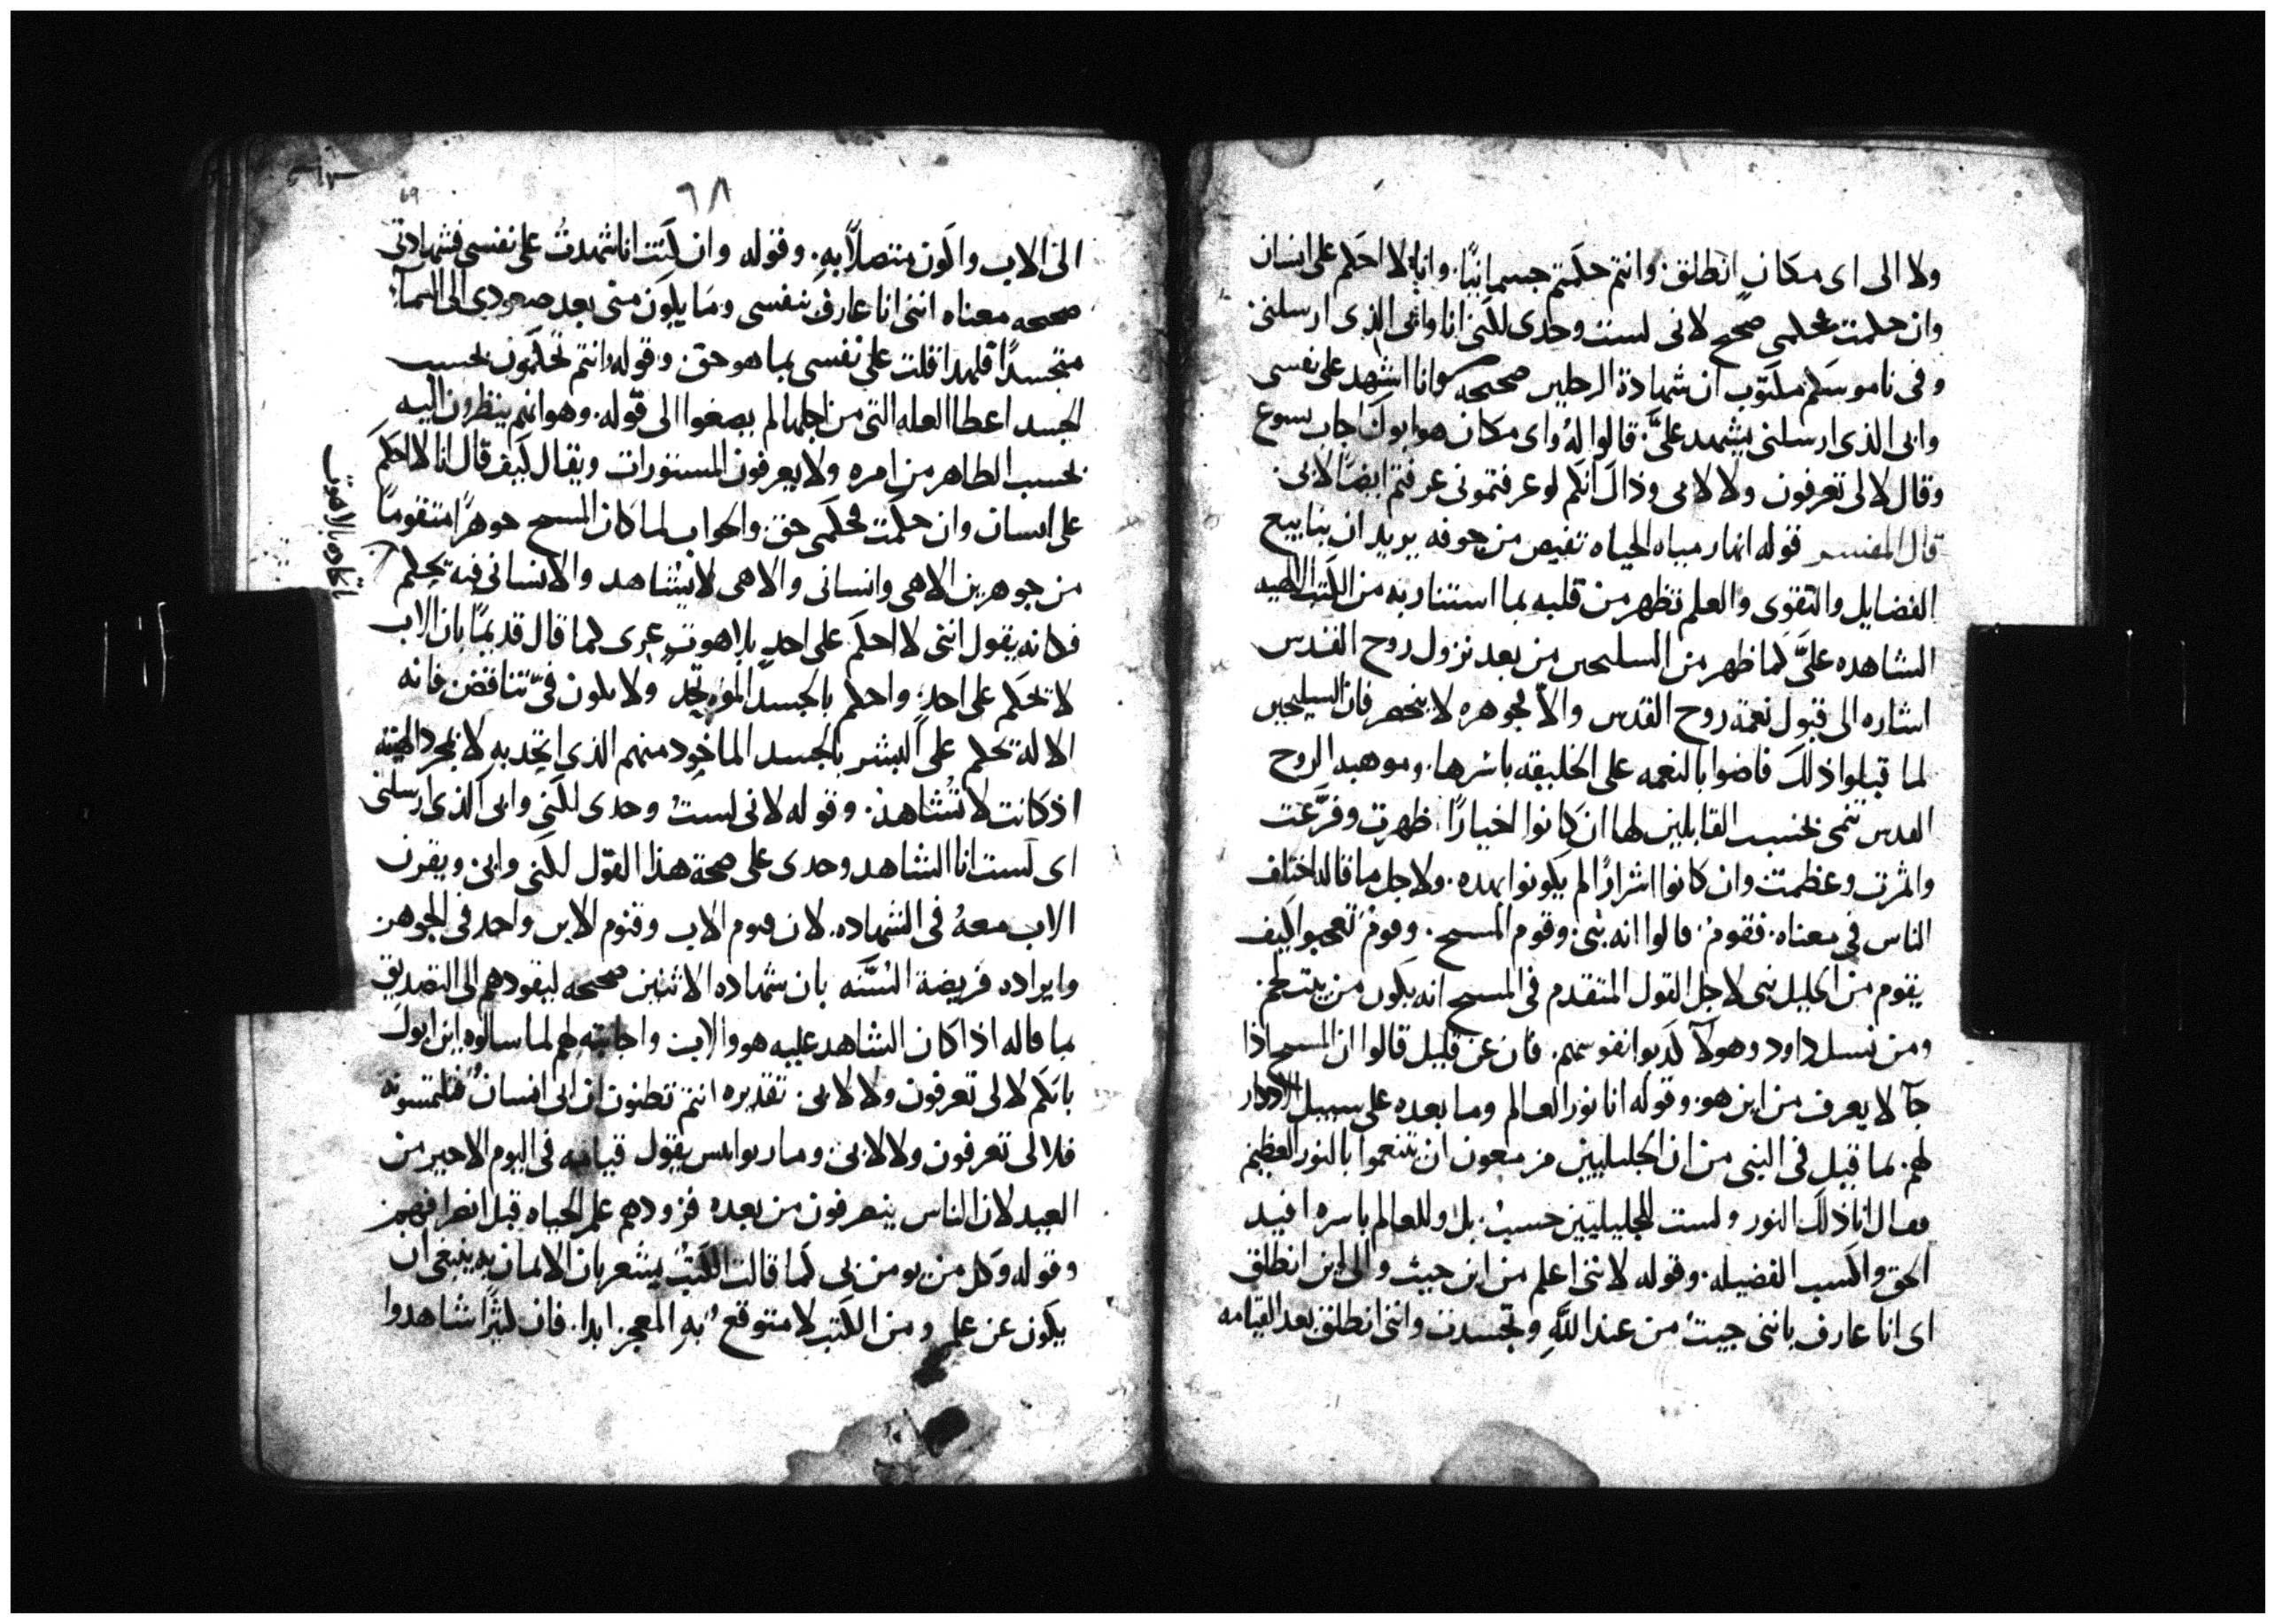 ولا الى اى مكان انطلق. وانتم حكمتم جسمانيًا. وانا لا احكم على انسان
وان حكمت فحكمى صحيح لانى لست وحدى لكنى انا وابى الذى ارسلنى
وفى ناموسكم مكتوب ان شهادة الرجلين صحيحه وانا اشهد على نفسى
وابى الذى ارسلنى يشهد علىَّ. قالوا لهُ واى مكان هو ابوك اجاب يسوع
وقال لا لى تعرفون ولا لابى وذاك انكم لو عرفتمونى عرفتم ايضًا لابى.
قال المفسر قوله انهار مياه الحياه تفيض من جوفه يريد ان ينابيع
الفضايل والتقوى والعلم تظهر من قلبه بما استنار به من الكتب الالهيه
الشاهده علىَّ كما ظهر من السليحين من بعد نزول روح القدس
اشاره الى قبول نعمة روح القدس والا فجوهره لا ينحصر فان السليحين
لما قبلوا ذلك فاضوا بالنعمه على الخليقه باسرها. وموهبه الروح
القدس تنمى بحسب القابلين لها ان كانوا اخيارًا ظهرت وفرَّعت
واثمرت وعظمت وان كانوا اشرارًا لم يكونوا بهده. ولاجل ما قاله اختلف
الناس فى معناه. فقومٌ. قالوا انه نبى. وقوم المسيح. وقومٌ تعجبوا كيف
يقوم من الجليل نبى لاجل القول المتقدم فى المسيح انه يكون من بيتلحم.
ومن نسل داود وهولآ كدبوا نفوسهم. فان عن قليل قالوا ان المسيح اذا
جآ لا يعرف من اين هو. وقوله انا نور العالم وما بعده على سبيل الادكار
لهم. بما قيل فى النبى من ان الجليليين مزمعون ان يتنعموا بالنور العظيم
فقال انا ذلك النور ولست للجليليين حسبُ. بل وللعالم باسره افيد
الحق واكسب الفضيله. وقوله لاننى اعلم من اين جيت والى اين انطلق
اى انا عارف باننى جيتُ من عند اللَّهِ وتجسدت واننى انطلق بعد القيامه
٦٨
الى الاب واكون متصلاً بهِ. وقوله وان كنت انا شهدتُ على نفسى فشهادتى
صحيحه معناه اننى انا عارف بنفسى وما يكون منى بعد صعودى الى السمآ
متجسدًا فلهدا قلت على نفسى بما هو حق. وقوله انتم تحكمون بحسب
الجسد اعطا العله التى من اجلها لم يصغوا الى قوله. وهو انهم ينظرون اليه
بحسب الظاهر من امره ولا يعرفون المستورات ويقال كيف قال انا لا احكم
على انسان وان حكمت فحكمى حق. والجواب لما كان المسيح جوهرًا متقومًا
من جوهرين الاهى وانسانى والاهى لا يشاهد والانسانى فيه يحكم
فكانه يقول اننى لا احكم على احدٍ بلاهوتٍ عرى كما قال قديمًا بان الاب
لا يحكم على احدٍ. واحكم بالجسد الموحَد ولا يكون فىّ تناقض فانه
الاله يحكم على البشر بالجسد الماخود منهم الذى اتحد به لا بمجرد الاهيته
اذ كانت لا تُشاهد. وقوله لانى لستُ وحدى لكنى وابى الذى ارسلنى
اى لست انا الشاهد وحدى على صحة هذا القول لكنى وابى ويقرن
الاب معهُ فى الشهاده. لان قنوم الاب وقنوم الابن واحد فى الجوهر.
وايراده فريضة السُنَّه بان شهاده الاثنين صحيحه ليقودهم الى التصديق
بما قاله اذا كان الشاهد عليه هو والاب واجابته لهم لما سالوه اين ابوك
بانكم لا لى تعرفون ولا لابى. تقديره انتم تظنون ان ابى انسانٌ فتلتمسونه
فلا لى تعرفون ولا لابى. ومار يوانيس يقول قيامه فى اليوم الاخير من
العيد لان الناس ينصرفون من بعده فزودهم علم الحياه قبل انصرافهم.
وقوله وكل من يومن بى كما قالت الكتبُ يشعر بان الايمان به ينبغى ان
يكون عن علم ومن الكتب لا متوقعٌ به المعجز. ابدا. فان كثيرًا شاهدوا
اتحاده بالاهوت